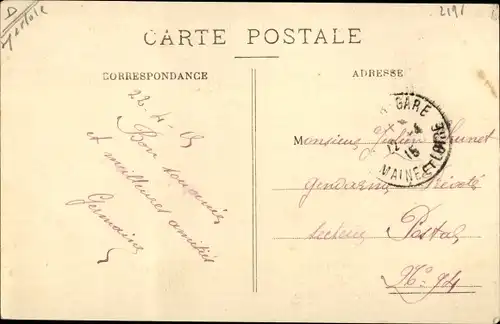 2191
CARTE POSTALE
CORRESPONDANCE
ADRESSE
Bon souvenir
et meilleures amitiés
Germaine
GARE
MAINE-ET-LOIRE
Monsieur
Gendarme
Secteur Postal
N° 94